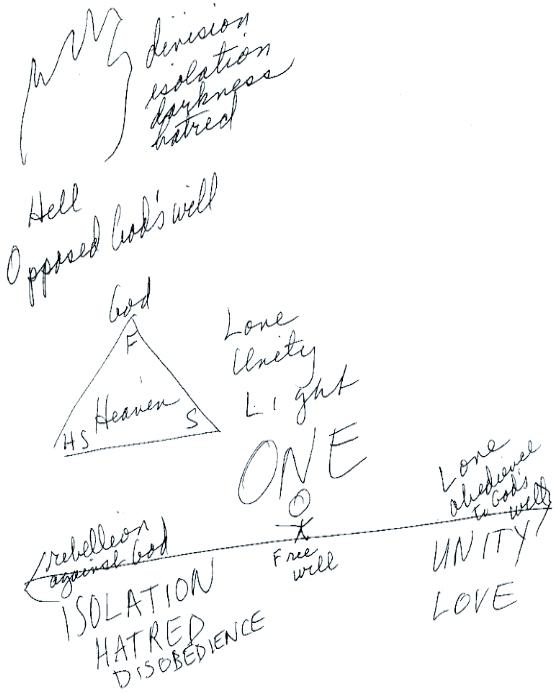 division
isolation
darkness
hatred
Hell
Opposed God's will
God
F
Heaven
HS
S
Love
Unity
Light
ONE
rebellion
against God
ISOLATION
HATRED
DISOBEDIENCE
Free
will
Love
obedience
to God's
will
UNITY
LOVE